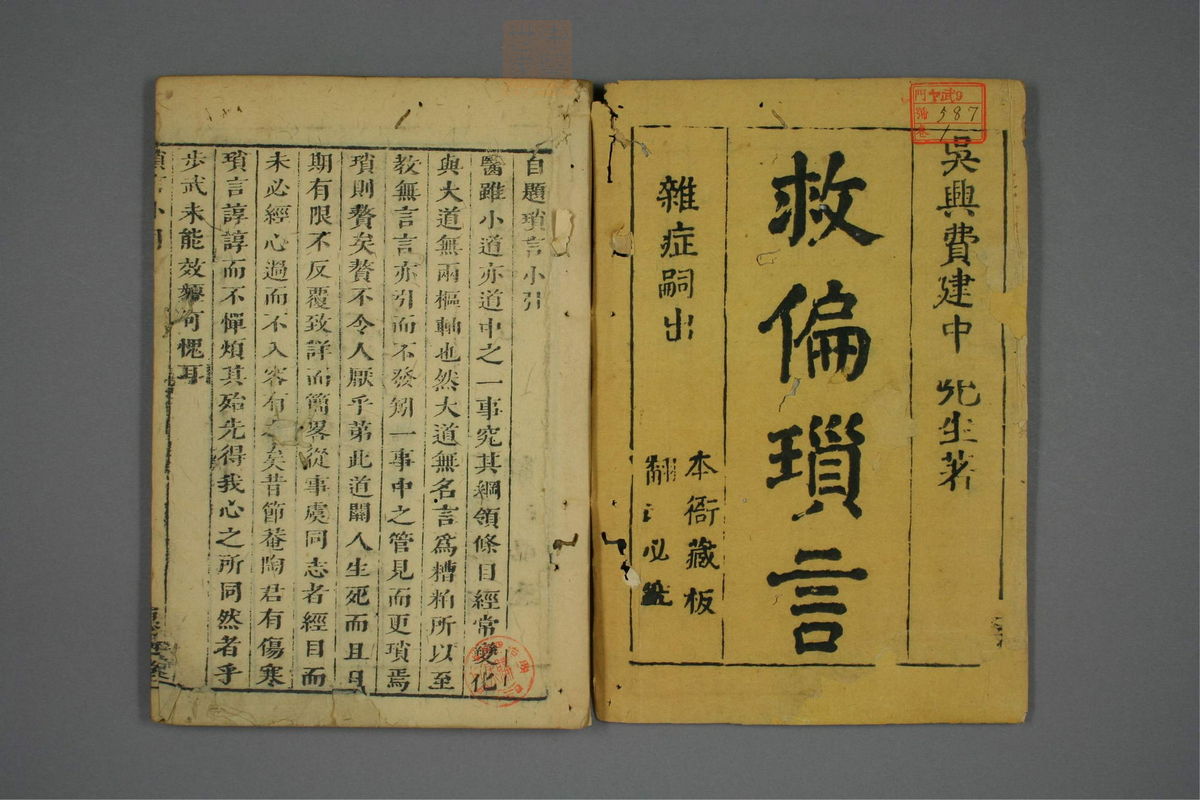 吳興費建中先生著
救偏瑣言
雜症嗣出
本衙藏板
翻必究
門
號 587
卷 1
自題瑣言小引
醫雖小道亦道中之一事究其綱領條目經常變化
與大道無兩樞軸也然大道無名言爲糟粕所以至
教無言言亦引而不發矧一事中之管見而更瑣焉
瑣則贅矣贅不令人厭乎第此道關人生死而且日
期有限不反覆致詳而簡畧從事虞同志者經目而
未必經心過而不入容有之矣昔節菴陶君有傷寒
瑣言諄諄而不憚煩其殆先得我心之所同然者乎
步武未能效顰何愧耳